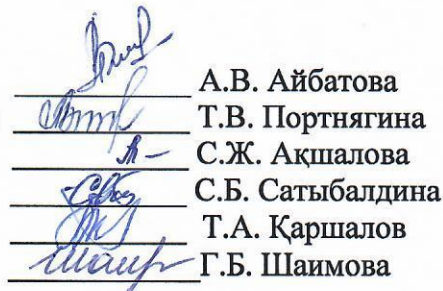 А.В. Айбатова
Т.В. Портнягина
С.Ж. Ақшалова
С.Б. Сатыбалдина
Т.А. Қаршалов
Г.Б. Шаимова